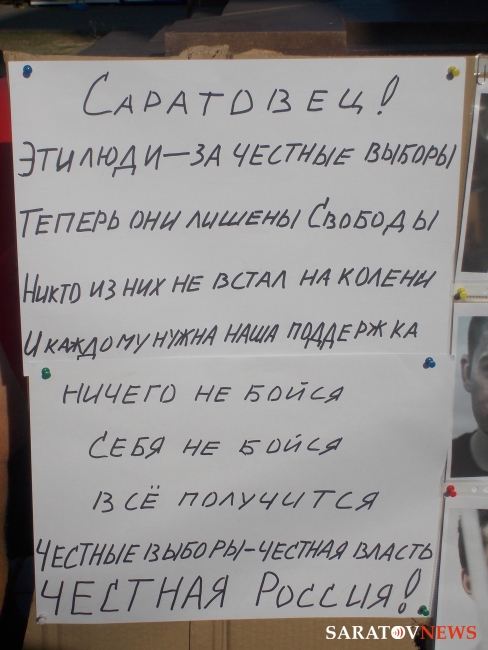 САРАТОВЕЦ!
ЭТИ ЛЮДИ—ЗА ЧЕСТНЫЕ ВЫБОРЫ
ТЕПЕРЬ ОНИ ЛИШЕНЫ СВОБОДЫ
НИКТО ИЗ НИХ НЕ ВСТАЛ НА КОЛЕНИ
И КАЖДОМУ НУЖНА НАША ПОДДЕРЖКА
НИЧЕГО НЕ БОЙСЯ
СЕБЯ НЕ БОЙСЯ
ВСЁ ПОЛУЧИТСЯ
ЧЕСТНЫЕ ВЫБОРЫ-ЧЕСТНАЯ ВЛАСТЬ
ЧЕСТНАЯ РОССИЯ!
SARATOVNEWS